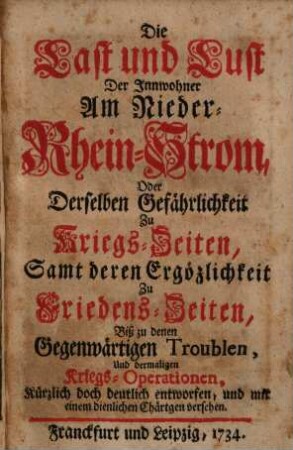 Die
Last und Lust
Der Innwohner
Am Nieder-
Rhein-Strom,
Oder
Derselben Gefährlichkeit
Zu
Kriegs-Zeiten,
Samt deren Ergözlichkeit
Zu
Friedens-Zeiten,
Biß zu denen
Gegenwärtigen Troublen,
Und dermaligen
Kriegs-Operationen,
Kürzlich doch deutlich entworfen, und mit
einem dienlichen Chärtgen versehen.
Franckfurt und Leipzig, 1734.